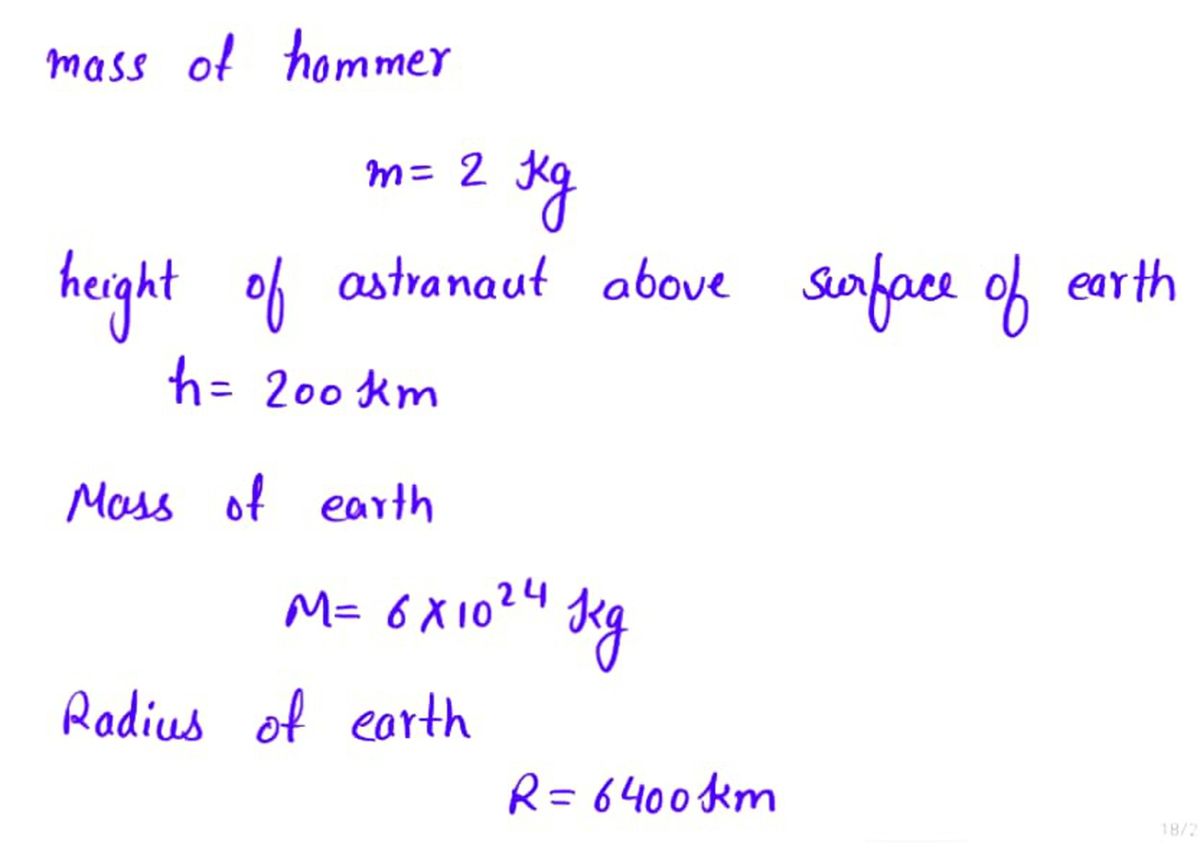 mass of hommer
m= 2 kg
height of astranaut above surface of earth
h= 200 km
Mass of earth
M= 6 X 10²⁴ kg
Radius of earth
R = 6400 km
18/2